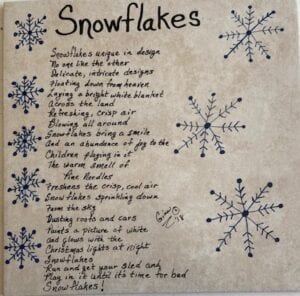 Snowflakes
Snowflakes unique in design
No one like the other
Delicate, intricate designs
Floating down from heaven
Laying a bright white blanket
Across the land
Refreshing, crisp air
Blowing all around
Snowflakes bring a smile
And an abundance of joy to the
Children playing in it
The warm smell of
Pine Needles
Freshens the crisp, cool air
Snowflakes sprinkling down
From the sky
Dusting roofs and cars
Paints a picture of white
and glows with the
Christmas lights at night
Snowflakes
Run and get your sled and
Play in it until its time for bed
Snowflakes!